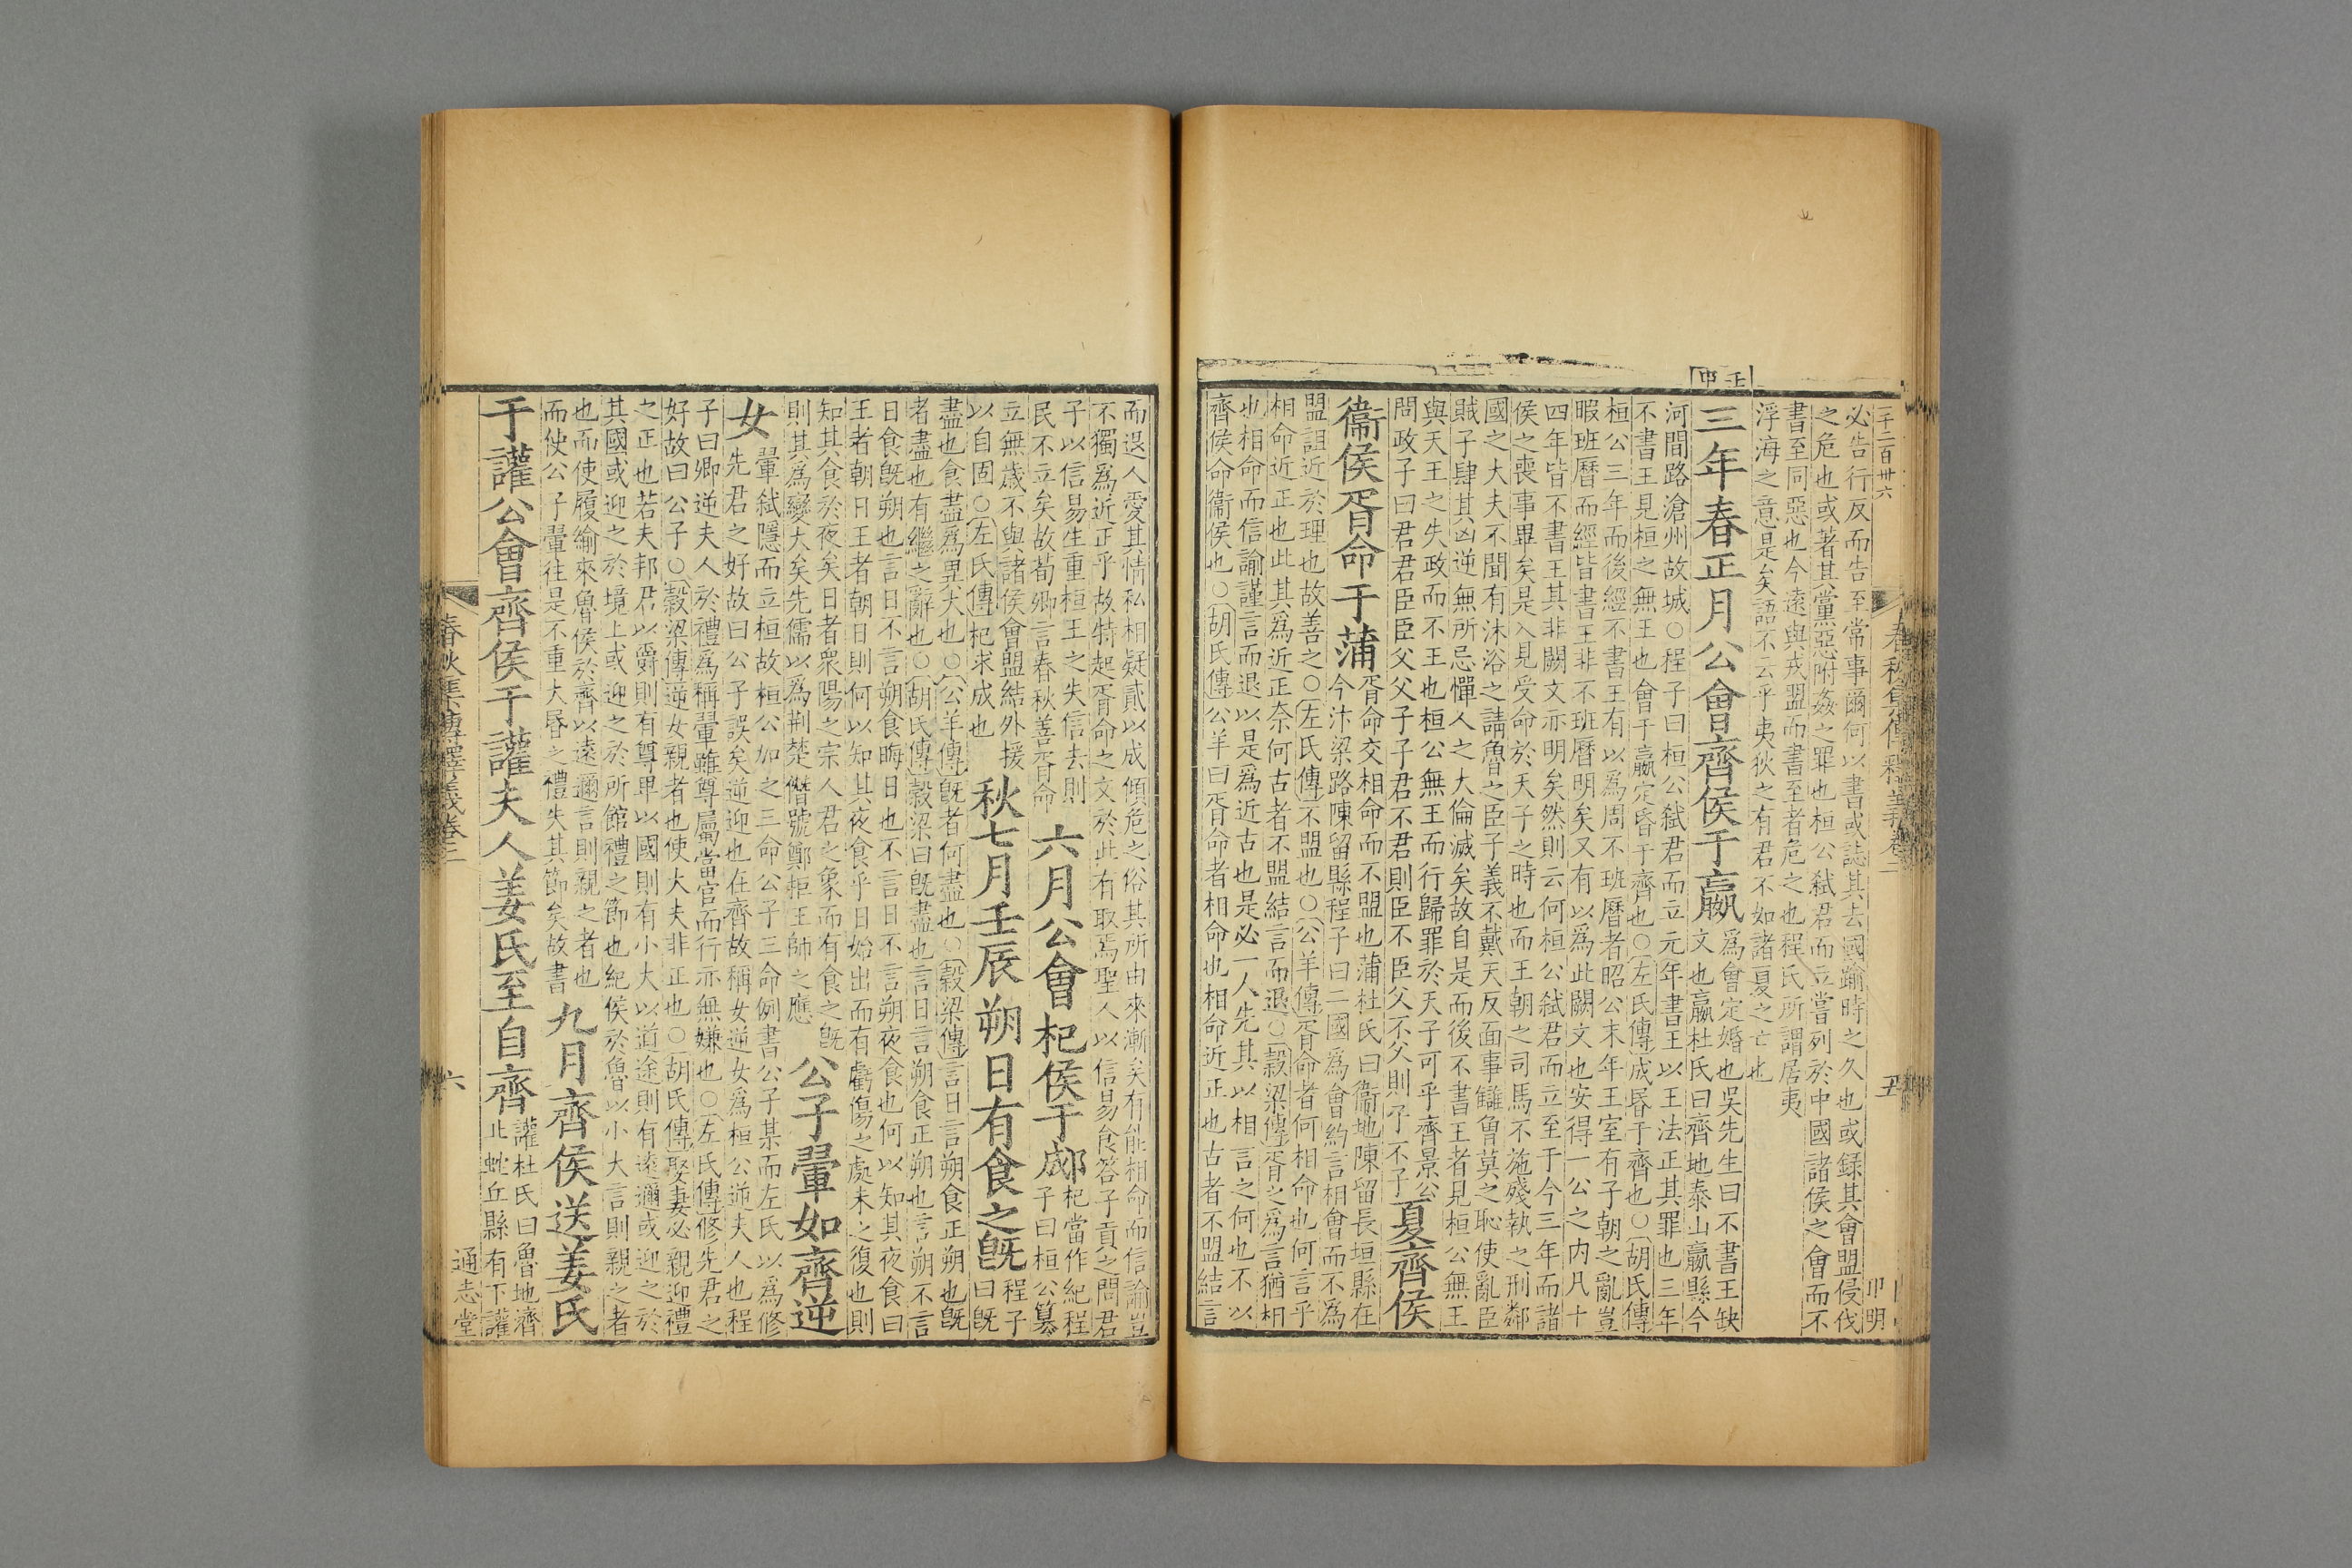 壬申
壬二百卅六
春秋集傳釋義卷二
五
卬明
必告行反而告至常事爾何以書或誌其去國踰時之久也或録其會盟侵伐
之危也或著其黨惡附姦之罪也桓公弑君而立當列於中國諸侯之會而不
書至同惡也今遠與戎盟而書至者危之也程氏所謂居夷
浮海之意是矣語不云乎夷狄之有君不如諸夏之亡也
三年春正月公會齊侯于嬴
爲會定婚也吳先生曰不書王缺
文也嬴杜氏曰齊地泰山嬴縣今
河間路滄州故城○程子曰桓公弑君而立元年書王以王法正其罪也三年
不書王見桓之無王也會于嬴定昏于齊也○左氏傳成昏于齊也○胡氏傳
桓公三年而後經不書王有以爲周不班曆者昭公末年王室有子朝之亂豈
暇班曆而經皆書王非不班曆明矣又有以爲此闕文也安得一公之内凡十
四年皆不書王其非闕文亦明矣然則云何桓公弑君而立至于今三年而諸
侯之喪事畢矣是入見受命於天子之時也而王朝之司馬不施殘執之刑鄰
國之大夫不聞有沐浴之請魯之臣子義不戴天反面事讎魯莫之恥使亂臣
賊子肆其凶逆無所忌憚人之大倫滅矣故自是而後不書王者見桓公無王
與天王之失政而不王也桓公無王而行歸罪於天子可乎齊景公
問政子曰君君臣臣父父子子君不君則臣不臣父不父則子不子
夏齊侯
衞侯胥命于蒲
胥命交相命而不盟也蒲杜氏曰衞地陳留長垣縣在
今汴梁路陳留縣程子曰二國爲會約言相會而不爲
盟詛近於理也故善之○左氏傳不盟也○公羊傳胥命者何相命也何言乎
相命近正也此其爲近正奈何古者不盟結言而退○穀梁傳胥之爲言猶相
也相命而信諭謹言而退以是爲近古也是必一人先其以相言之何也不以
齊侯命衞侯也○胡氏傳公羊曰胥命者相命也相命近正也古者不盟結言
而退人愛其情私相疑貳以成傾危之俗其所由來漸矣有能相命而信諭豈
不獨爲近正乎故特起胥命之文於此有取焉聖人以信易食答子貢之問君
子以信易生重桓王之失信去則
民不立矣故荀卿言春秋善胥命
六月公會杞侯于郕
杞當作紀程
子曰桓公簒
立無歳不與諸侯會盟結外援
以自固○左氏傳杞求成也
秋七月壬辰朔日有食之旣
程子
曰旣
盡也食盡爲異大也○公羊傳旣者何盡也○穀梁傳言日言朔食正朔也旣
者盡也有繼之辭也○胡氏傳穀梁曰旣盡也言日言朔食正朔也言朔不言
日食旣朔也言日不言朔食晦日也不言日不言朔夜食也何以知其夜食曰
王者朝日王者朝日則何以知其夜食乎日始出而有虧傷之處未之復也則
知其食於夜矣日者衆陽之宗人君之象而有食之旣
則其爲變大矣先儒以爲荆楚僭號鄭拒王師之應
公子翬如齊逆
女
翬弑隱而立桓故桓公加之三命公子三命例書公子某而左氏以爲修
先君之好故曰公子誤矣逆迎也在齊故稱女逆女爲桓公逆夫人也程
子曰卿逆夫人於禮爲稱翬雖尊屬當官而行亦無嫌也○左氏傳修先君之
好故曰公子○穀梁傳逆女親者也使大夫非正也○胡氏傳娶妻必親迎禮
之正也若夫邦君以爵則有尊卑以國則有小大以道途則有遠邇或迎之於
其國或迎之於境上或迎之於所館禮之節也紀侯於魯以小大言則親之者
也而使履緰來魯侯於齊以遠邇言則親之者也
而使公子翬往是不重大昏之禮失其節矣故書
九月齊侯送姜氏
于讙公會齊侯于讙夫人姜氏至自齊
讙杜氏曰魯地濟
北虵丘縣有下讙
春秋集傳釋義卷二
六
通志堂